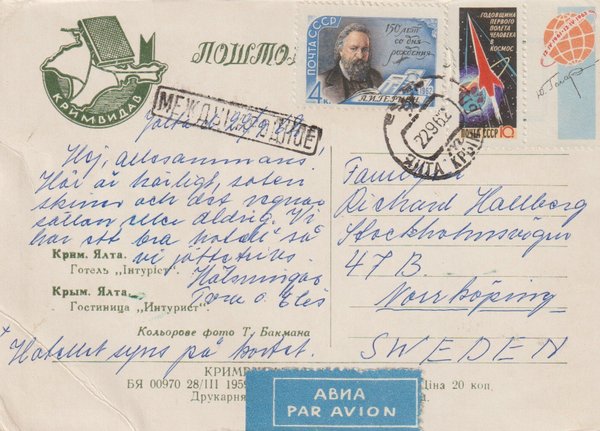 КРИМВИДАВ
ПОШТО
МЕЖДУНАРОДНОЕ
ПОЧТА СССР
150 лет
со дня
рождения
1962
4 к.
А.И.ГЕРЦЕН
ГОДОВЩИНА
ПЕРВОГО
ПОЛЕТА
ЧЕЛОВЕКА
В
КОСМОС
ПОЧТА СССР 10 К
22 9 62
ЯЛТА КРЫМ
Jalta
Hej, allesammans!
Här är härligt, solen
skiner och det regnar
sällan eller aldrig. Vi
har ett bra hotell så
vi
Hälsningar
Tora o. Elis
+ Hotellet syns på kortet.
Крим. Ялта.
Готель „Інтуріст".
Крым. Ялта.
Гостиница „Интурист".
Кольорове фото Т. Бакмана
Familjen
Rickard Hallberg
Stockholmsvägen
47 B.
Norrköping
SWEDEN
БЯ 00970 28/III 1959
Ціна 20 коп.
Друкарня
АВИА
PAR AVION